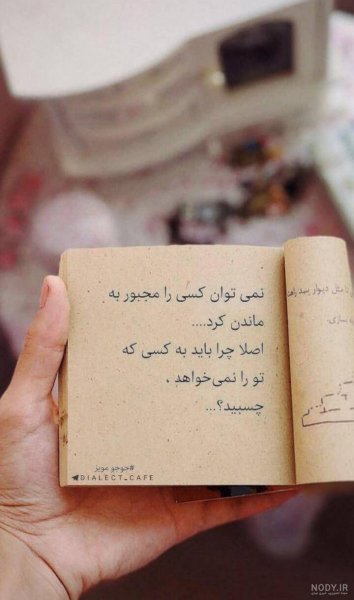 نمی توان کسی را مجبور به
ماندن کرد....
اصلا چرا باید به کسی که
تو را نمی‌خواهد ،
چسبید؟...
#جوجو مویز
DIALECT_CAFE
مثل دیوار
سازی.
NODY.IR